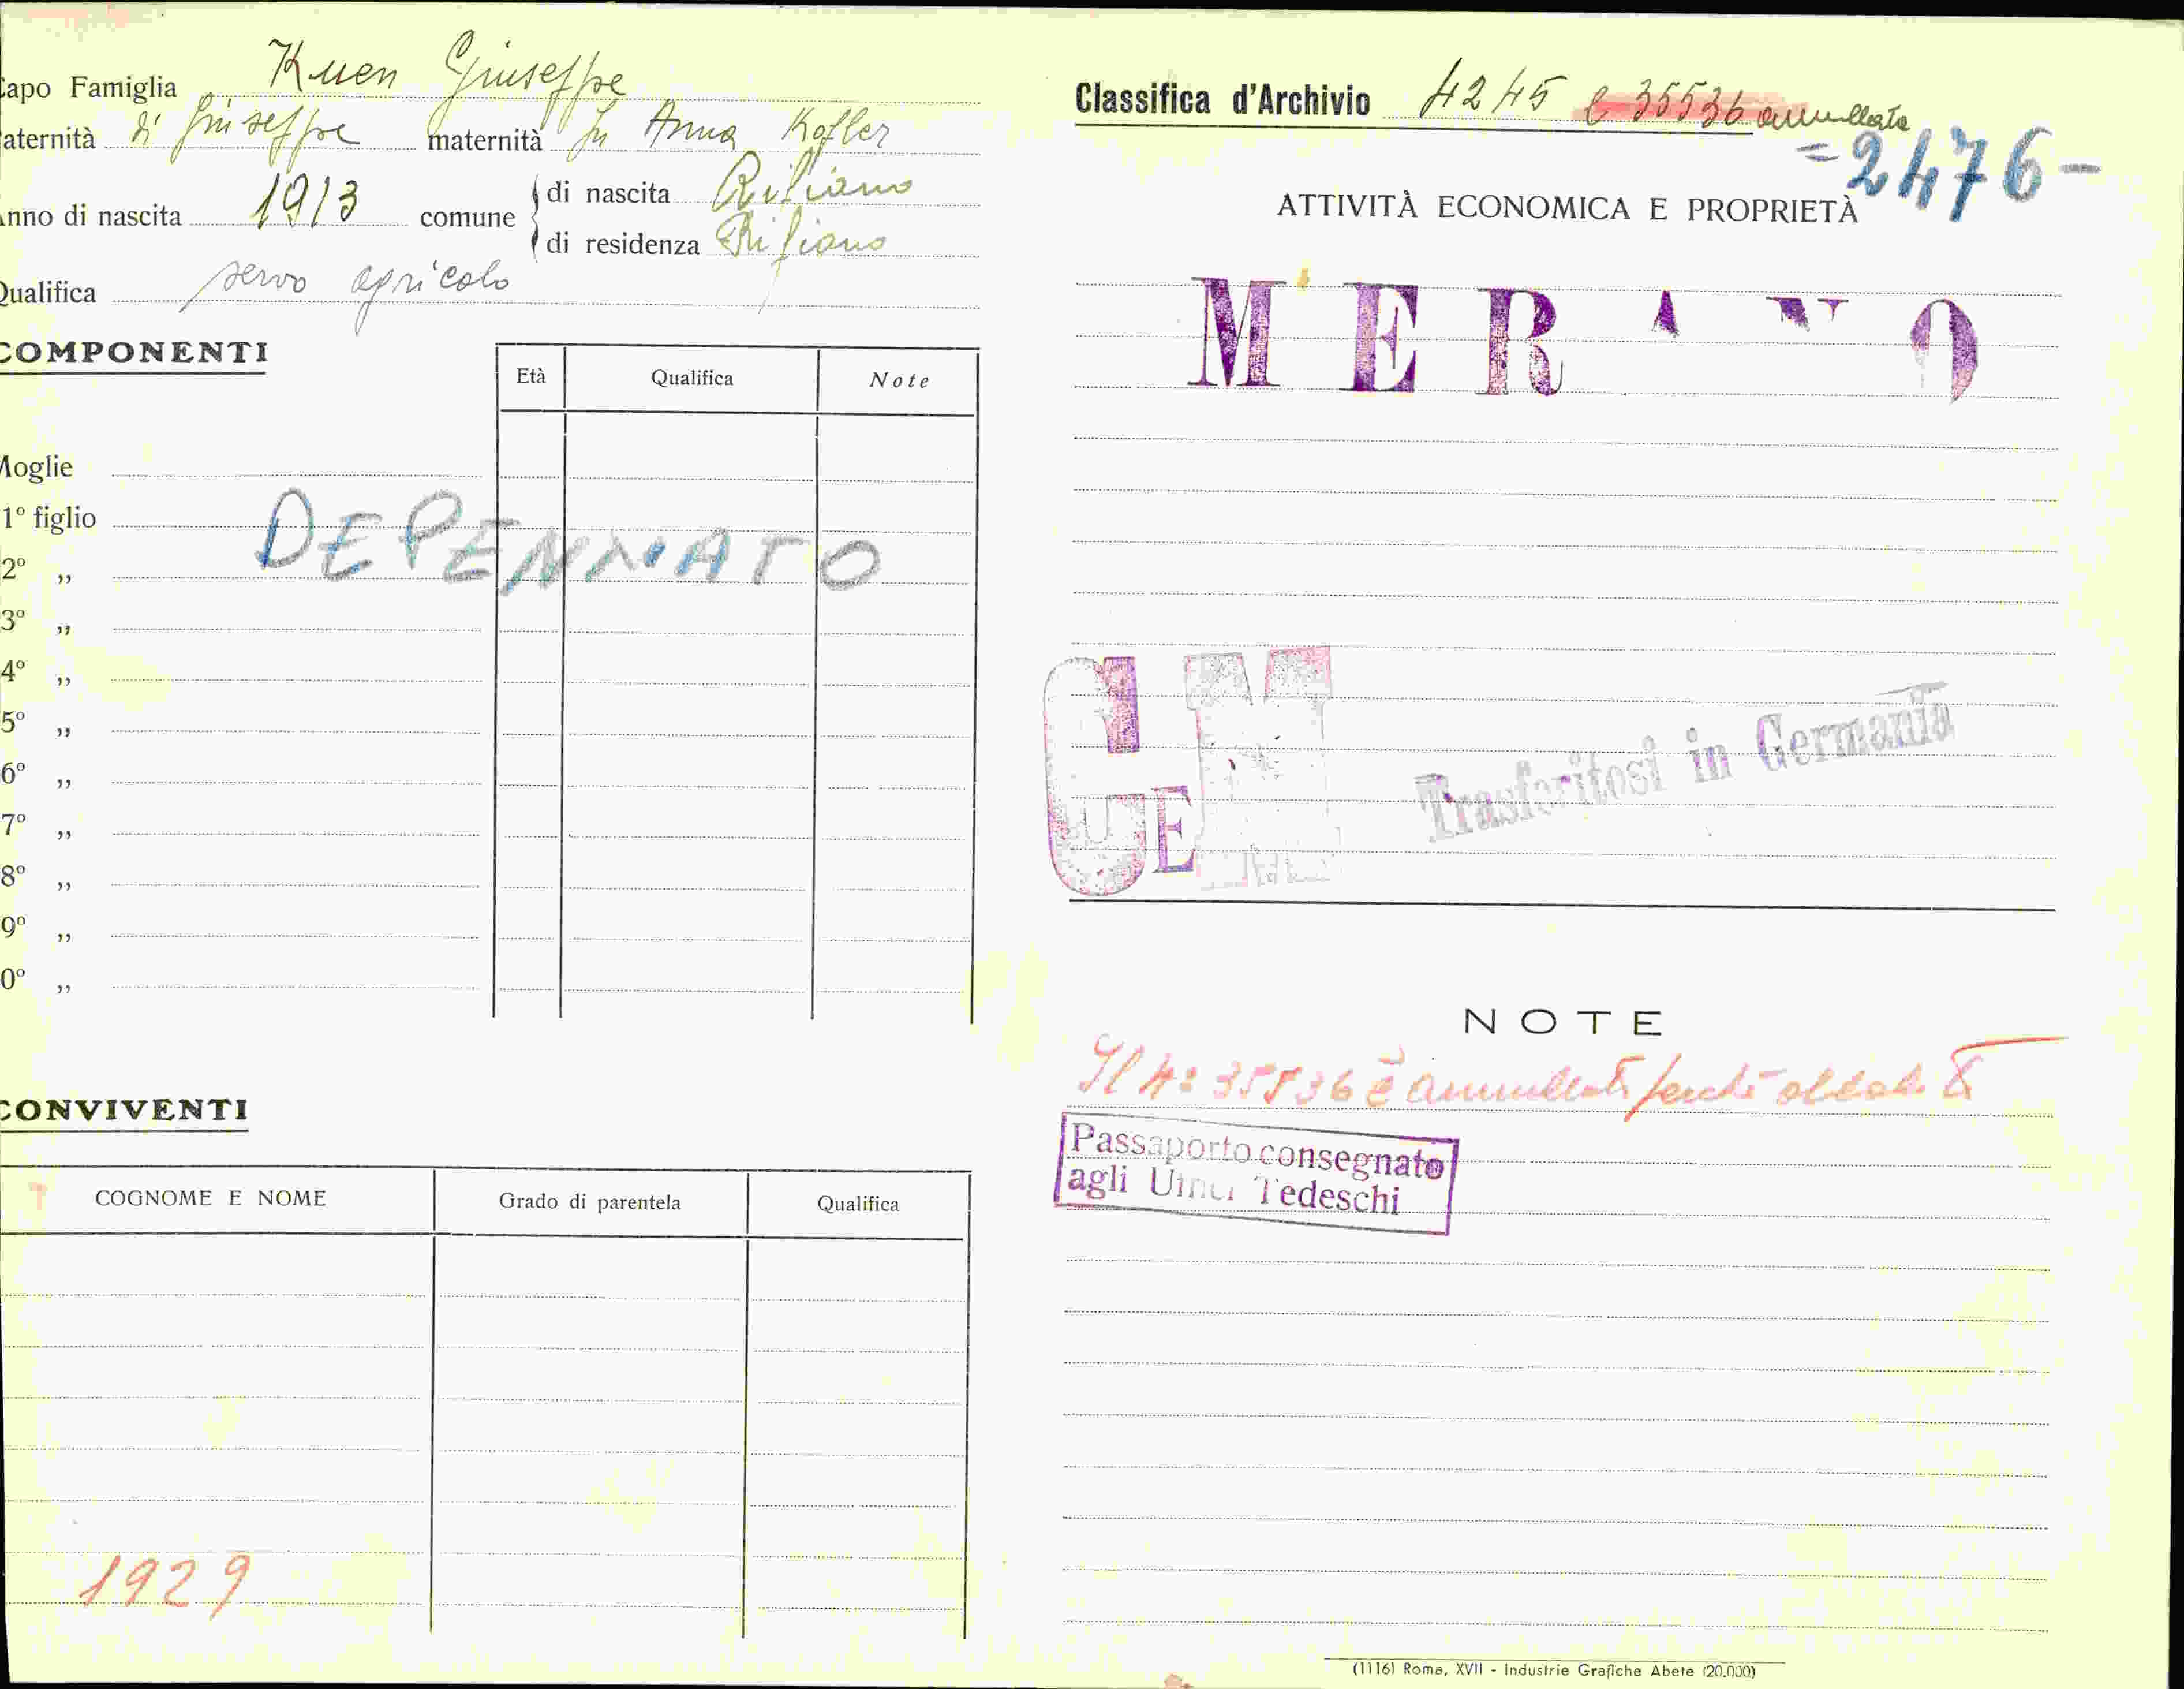 apo Famiglia Kuen Giuseppe
aternità di Giuseppe maternità fu Anna Kofler
nno di nascita 1913 comune di nascita Rifiano
di residenza Rifiano
Qualifica servo agricolo
COMPONENTI
Età Qualifica Note
Moglie
1º figlio
DEPENNATO
2º „
3º „
4º „
5º „
6º „
7º „
8º „
9º „
0º „
CONVIVENTI
COGNOME E NOME Grado di parentela Qualifica
1929
Classifica d'Archivio 4245 e 35536 annullata
=2476-
ATTIVITÀ ECONOMICA E PROPRIETÀ
MERANO
Trasferitosi in Germania
NOTE
Il Nº 35536 è annullato perchè
Passaporto consegnato
agli Uffici Tedeschi
(1116) Roma, XVII - Industrie Grafiche Abete (20.000)